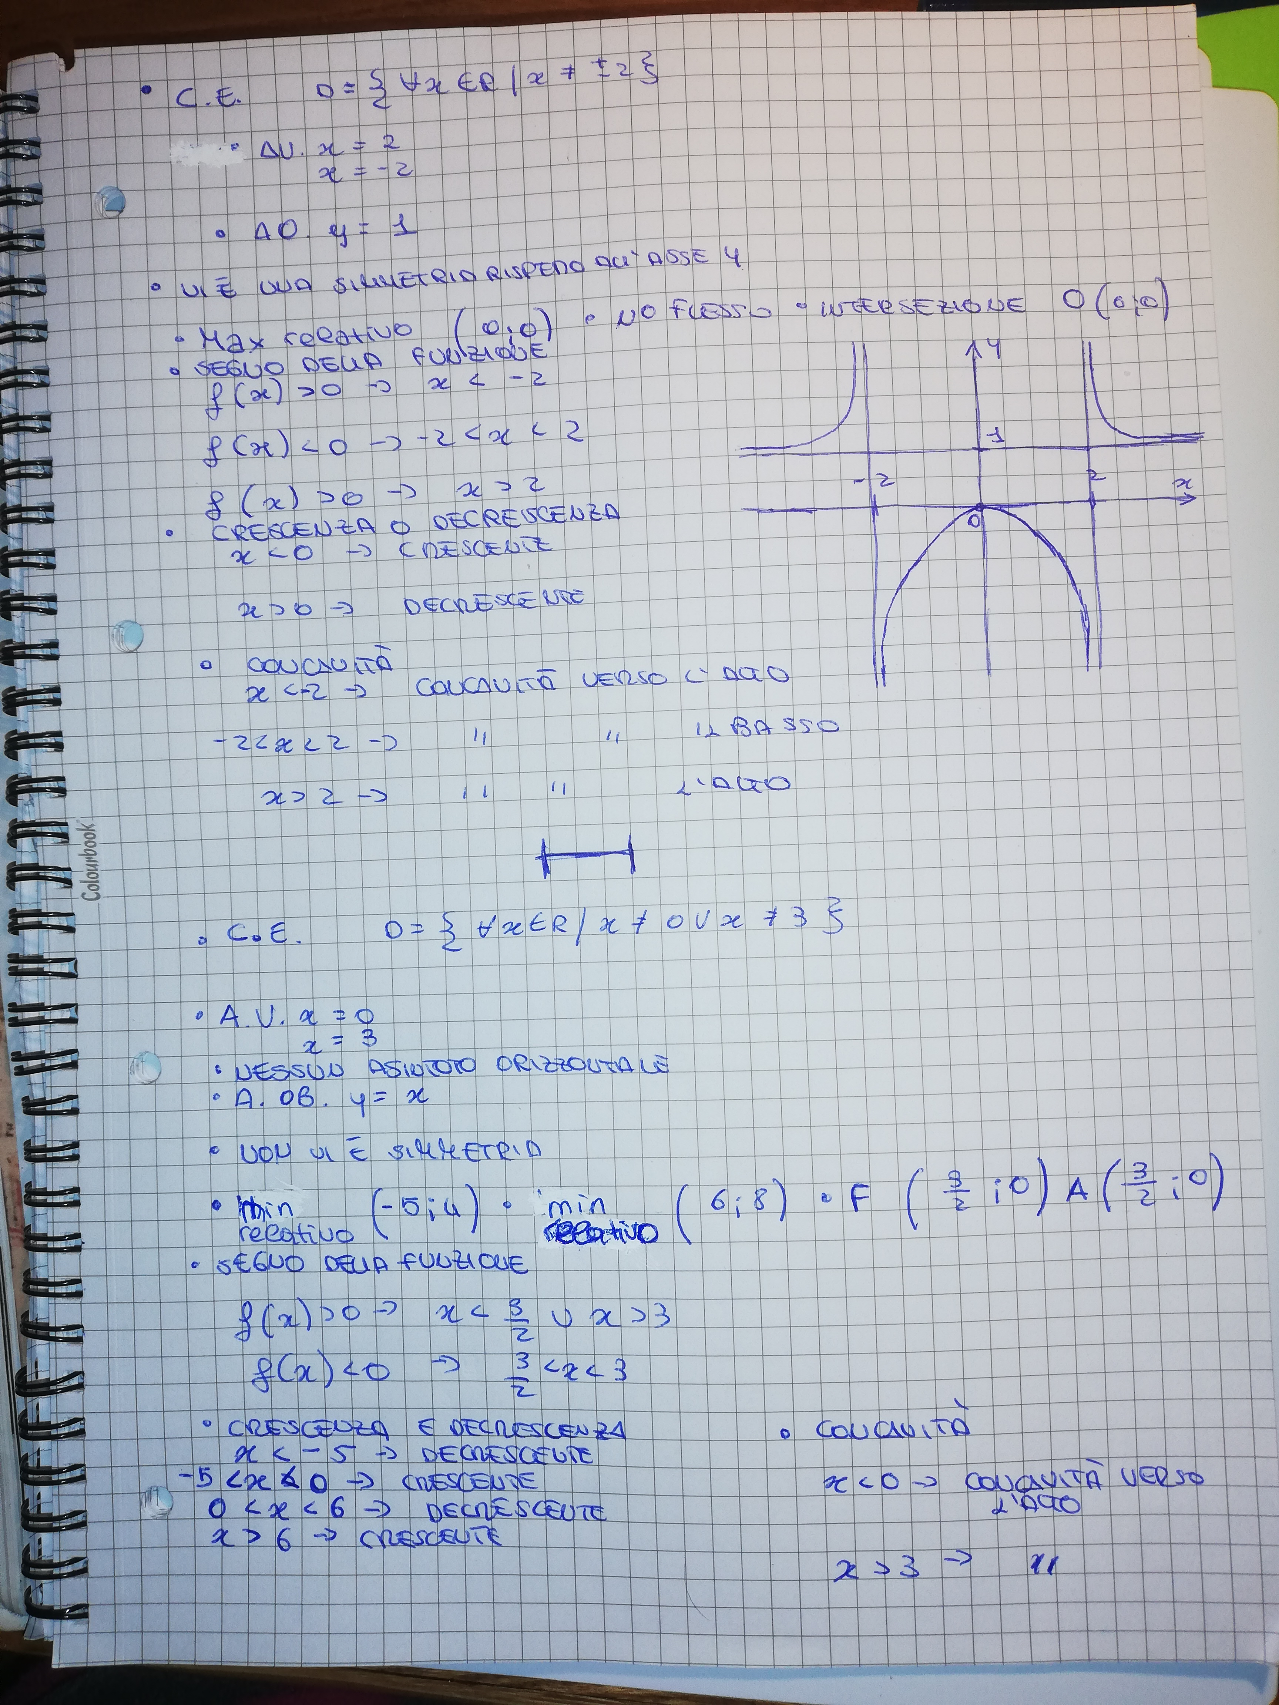 • C.E. D = { ∀x ∈ R / x ≠ ±2 }
• A.V. x = 2
x = -2
• A.O. y = 1
• VI È UNA SIMMETRIA RISPETTO ALL'ASSE Y
• Max relativo (0;0) • NO FLESSO • INTERSEZIONE O (0;0)
• SEGNO DELLA FUNZIONE
f(x) > 0 → x < -2
f(x) < 0 → -2 < x < 2
f(x) > 0 → x > 2
• CRESCENZA O DECRESCENZA
x < 0 → CRESCENTE
x > 0 → DECRESCENTE
• CONCAVITÀ
x < -2 → CONCAVITÀ VERSO L'ALTO
-2 < x < 2 → " " IL BASSO
x > 2 → " " L'ALTO
y
1
-2 2 x
0
Colourbook
• C.E. D = { ∀x ∈ R / x ≠ 0 ∪ x ≠ 3 }
• A.V. x = 0
x = 3
• NESSUN ASINTOTO ORIZZONTALE
• A. OB. y = x
• NON VI È SIMMETRIA
• min relativo (-5;4) • min relativo (6;8) • F (3/2 ; 0) A (3/2 ; 0)
• SEGNO DELLA FUNZIONE
f(x) > 0 → x < 3/2 ∪ x > 3
f(x) < 0 → 3/2 < x < 3
• CRESCENZA E DECRESCENZA
x < -5 → DECRESCENTE
-5 < x < 0 → CRESCENTE
0 < x < 6 → DECRESCENTE
x > 6 → CRESCENTE
• CONCAVITÀ
x < 0 → CONCAVITÀ VERSO
L'ALTO
x > 3 → "